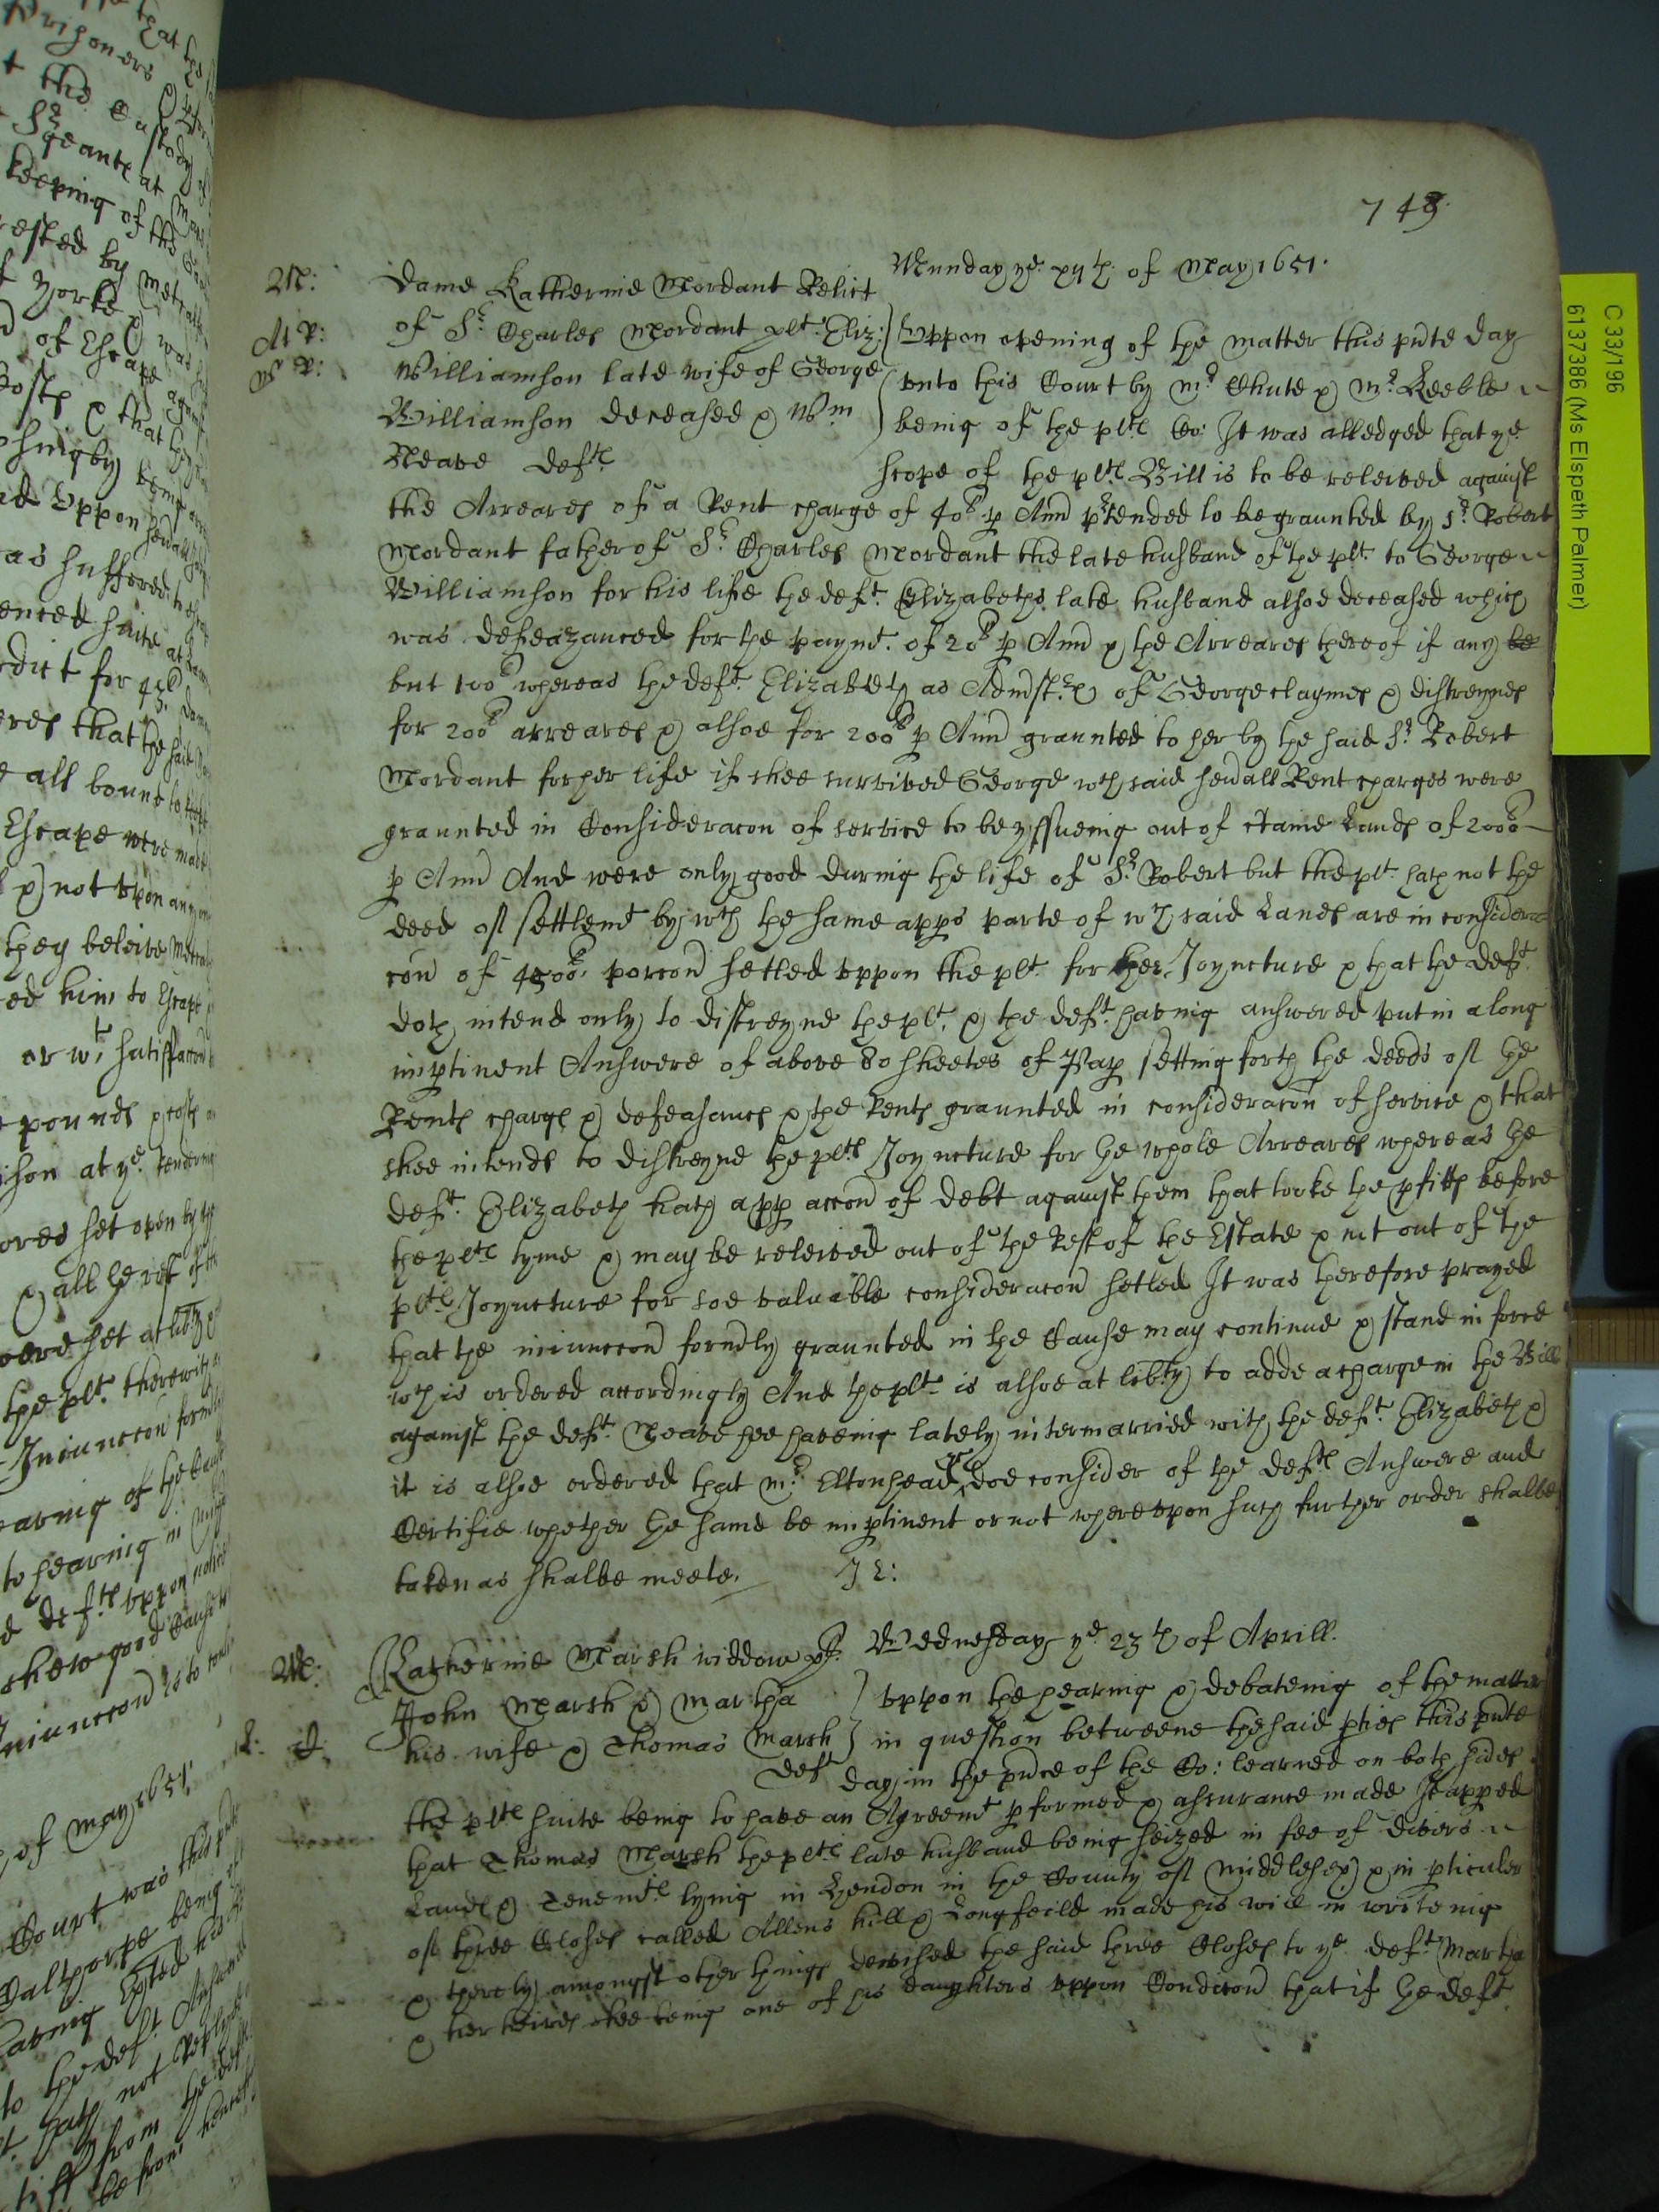 749.
Munday ye. xijth. of May 1651.
M: Dame Katherine Mordant Relict
of Sr. Charles Mordant plt. Eliz:
Williamson late wife of George
Williamson deceased & Wm
Neave defts
Uppon opening of the matter this pnte day
unto this Court by mr. Chute & mr. Keeble
being of the plts Co: It was alledged that ye.
scope of the plts Bill is to be releived against
the Arreares of a Rent charge of 40li p Ann prtended to be graunted by Sr. Robert
Mordant father of Sr. Charles Mordant the late husband of the plt. to George
Williamson for his life the deft. Elizabeths late husband alsoe deceased which
was defeazanced for the paymt. of 20li p Ann & the Arreares thereof if any be
but 100li whereas the deft. Elizabeth as Admstr. of George claymes & distreynes
for 200li arreares & alsoe for 200li p Ann graunted to her by the said Sr. Robert
Mordant for her life if shee survived George wch said sevall Rent charges were
graunted in Consideracon of service to be yssueing out of ctaine Lands of 2000li
p Ann And were only good during the life of Sr. Robert but the plt. hath not the
deed of settlemt by wch the same apps parte of wch said Lands are in considera
con of 4500li. porcon setled uppon the plt. for her Joyncture & that the deft.
doth intend only to distreyne the plt. & the deft. having answered put in a long
imptinent Answere of above 80 sheetes of Pap setting forth the deeds of the
Rents charge & defeasance & the Rents graunted in consideracon of service & that
shee intends to distreyne the plts Joyncture for the whole Arreares whereas the
deft. Elizabeth hath a pp accon of debt against them that tooke the pfitts before
the plts tyme & may be releived out of the Rest of the Estate & not out of the
plts Joyncture for soe valuable consideracon setled It was therefore prayed
that the iniunccon formly graunted in the Cause may continue & stand in force
wch is ordered accordingly And the plt. is alsoe at libty to adde a charge in the Bill
against the deft. Neave hee haveing lately intermarried with the deft. Elizabeth &
it is alsoe ordered that mr. Eltonhead doe consider of the defts Answere and
Certifie whether the same be imptinent or not whereupon such further order shalbe
taken as shalbe meete. J L:
Wednesday ye. 23th of Aprill.
M: Katherine Marsh widdow plt.
John Marsh & Martha
his wife & Thomas Marsh
deft
Uppon the hearing & debateing of the matter
in question betweene the said pties this pnte
day in the pnce of the Co: learned on both sides
the plts suite being to have an Agreemt pformed & assurance made It apped
that Thomas Marsh the plts late husband being seized in fee of divers
Lands & Tenemts lying in Hendon in the County of Middlesex & in pticuler
of three Closes called Allens hill & Longfeild made his will in writeing
& thereby amongst other things devised the said three Closes to ye. deft Martha
& her heires shee being one of his daughters uppon Condicon that if the deft.